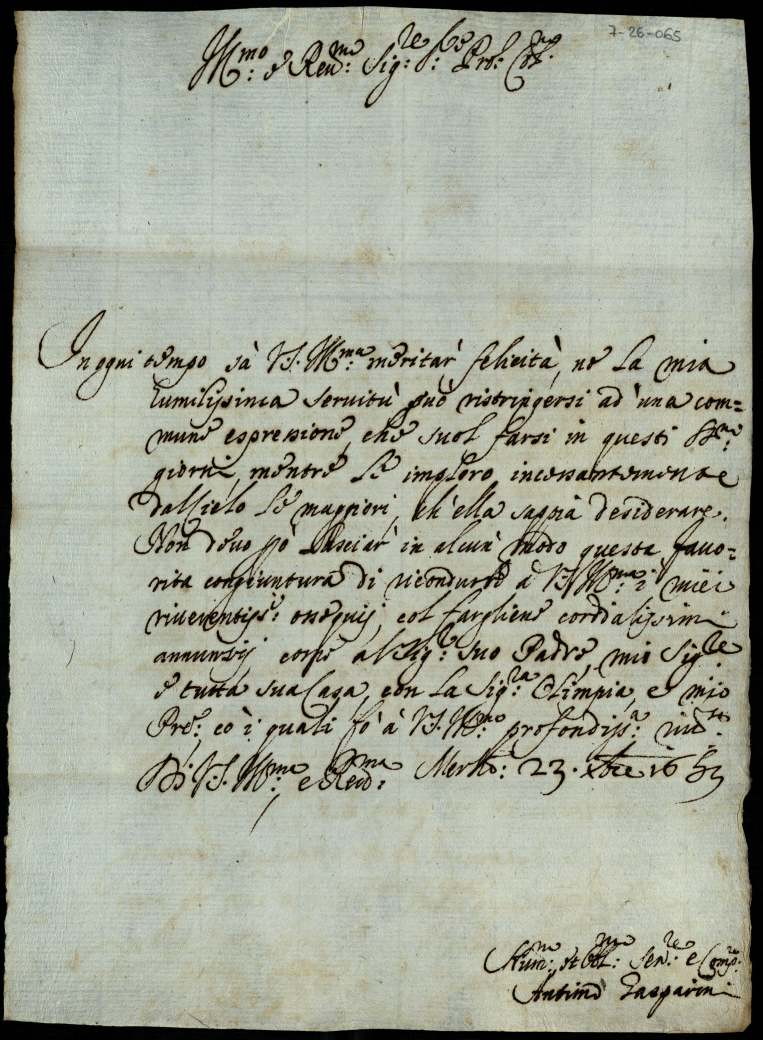 7-26-065
Ill.mo e Reu.mo Sig.re P.ne Col.mo
In ogni tempo sà V.S. Ill.ma meritar felicità, ne la mia
humilissima seruitù può ristringersi ad una com=
mune espressione, che suol farsi in questi S.mi
giorni, mentre Le imploro incessantemente
dal Cielo le maggiori, ch'ella sappia desiderare.
Non deuo però lasciar in alcun modo questa fauo=
rita congiuntura di ricondurre à V.S. Ill.ma i miei
riuerentiss.i ossequij, col fargliene cordialissimi
annuntij come al Sig.re suo Padre, mio Sig.re
e tutta sua Casa, con la Sig.ra Olimpia, e mio
co i quali fò à V.S. Ill.ma profondiss.a
Di V.S. Ill.ma e Reu.ma 23. xbre 16
Hum.mo et Obl.mo Ser.re e
Antimo Gasparini